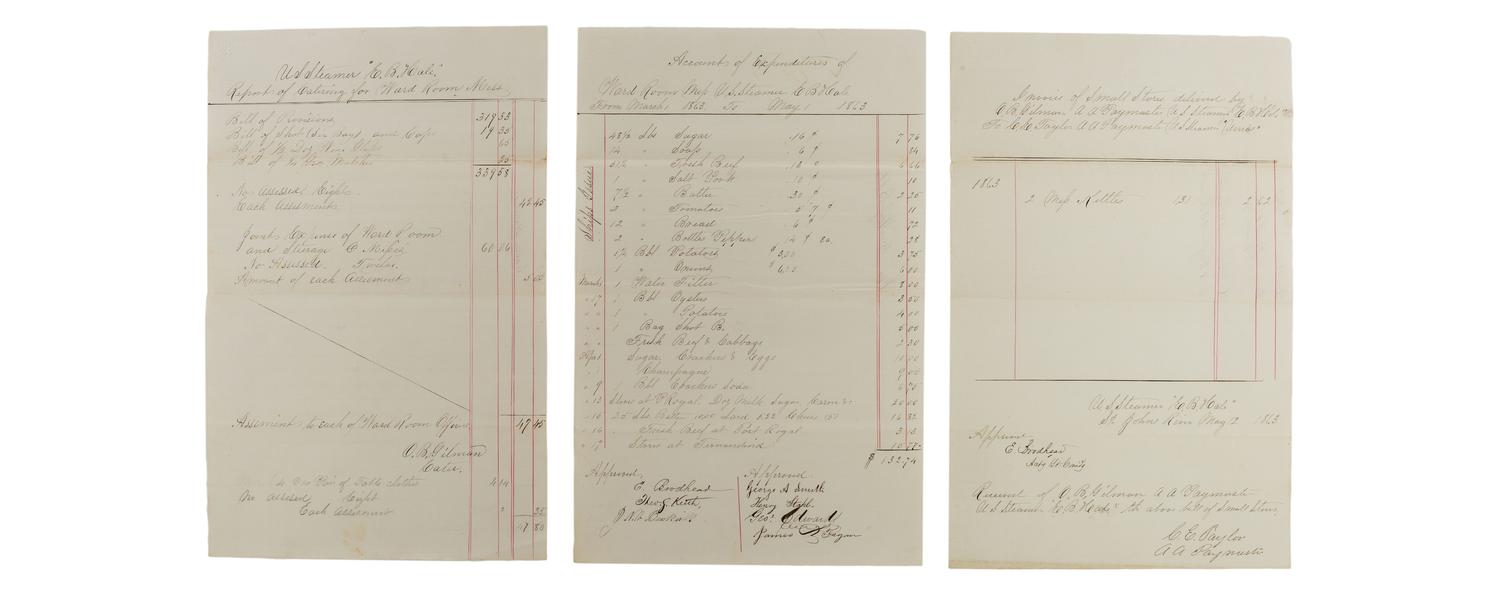 U S Steamer "E. B. Hale".
Report of Catering for Ward Room Mess
Bill of Provisions 319 33
Bill of Shot and Caps 19 35
Bill of ½ Doz 65
Bill of ½ Gro Matches 25
339 58
No Assessed Eight
Each Assessment 42 45
Joint Expenses of Ward Room
and Steerage Messes 60 06
No Assessed Twelve
Amount of each Assessment 5 00
Assessment to each of Ward Room Officers 47 45
O. B. Gilman
Cater.
of Table clothes 4 14
No assessed Eight
Each assessment
47 80
Accounts of Expenditures of
Ward Room Mess U.S. Steamer E B Hale
From March 1863 To May 1 1863
Ships Issue
48½ Lbs Sugar .16 ¢ 7 76
14 " Soap 6 ¢ 84
" Fresh Beef .12 ¢ 6
1 " Salt Pork .10 ¢ 10
7½ " Butter .30 ¢ 2 25
" Tomatoes 11
12 " Bread 6 ¢ 72
2 " Bottles Pepper 14 ¢ ea. 28
1¼ Bbl Potatoes $ 3,00 3 75
1 " Onions $ 6,00 6 00
March 1 Water Filter 8 00
" 17 1 Bbl Oysters 2 50
" " 1 " Potatoes 4 00
" " 1 Bag Shot B. 5 00
" " Fresh Beef & Cabbage 2 30
April Sugar, Crackers & Eggs 10 00
" Champagne 9 00
" 9 1 Bbl Crackers Soda 6 75
" 13 Stores at P. Royal, Doz Milk Sugar, 20 00
" 16 25 Lbs Butter Lard 16 82
" 16 " Fresh Beef at Port Royal 3 13
" 17 Stores at Fernandina 16 77
$ 132 74
Approved,
E. Brodhead
Theo. G. Keith,
Approved
George A Smith
Henry
Geo. Edward
James Fagan
Invoice of Small Stores delivered by
O. B. Gilman A A Paymaster U S Steamer "E. B Hale"
To C. E. Taylor A A Paymaster U. S Steamer
1863
2 Mess Kettles 1 31 2 62
U. S Steamer "E. B Hale"
St Johns River May 12 1863
Approved
E. Brodhead
Actg Lt Comdg
Received of O. B. Gilman A A Paymaster
U S Steamer "E. B Hale" the above bill of Small Stores,
C. E. Taylor
A A Paymaster